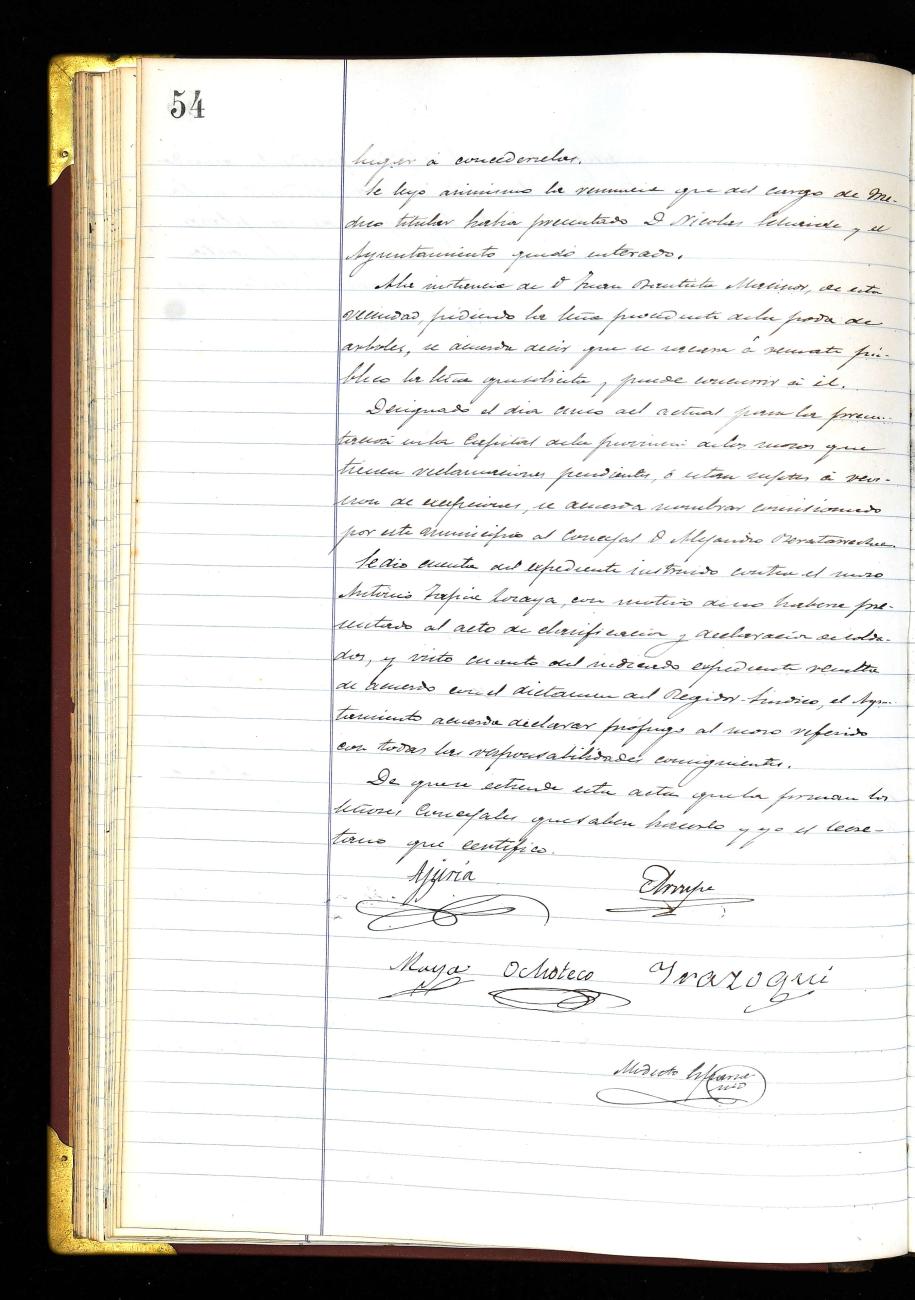 54
lugar á concederselas.
Se leyó asimismo la renuncia que del cargo de Mé-
dico titular habia presentado D Nicolas y el
Ayuntamiento quedó enterado.
A la instancia de D Juan Bautista, de esta
vecindad, pidiendo la leña procedente de la poda de
arboles, se acuerda decir que se sacara á remate pú-
blico la leña que solicita, y puede concurrir á él.
Designado el dia cinco del actual para la presen-
tacion en la Capital de la provincia de los mozos que
tienen reclamaciones pendientes, ó estan sujetos á revi-
sion de excepciones, se acuerda nombrar comisionado
por este municipio al Concejal D Alejandro
Se dió cuenta del expediente instruido contra el mozo
Antonio, con motivo de no haberse pre-
sentado al acto de clasificacion y declaracion de solda-
dos, y visto cuanto del indicado expediente resulta
de acuerdo con el dictamen del Regidor Sindico, el Ayun-
tamiento acuerda declarar profugo al mozo referido
con todas las responsabilidades consiguientes.
De que se estiende esta acta que la firman los
Señores Concejales que saben hacerlo y yo el Secre-
tario que certifico.
Ajuria
Maya Ochoteco Irazoqui
Modesto